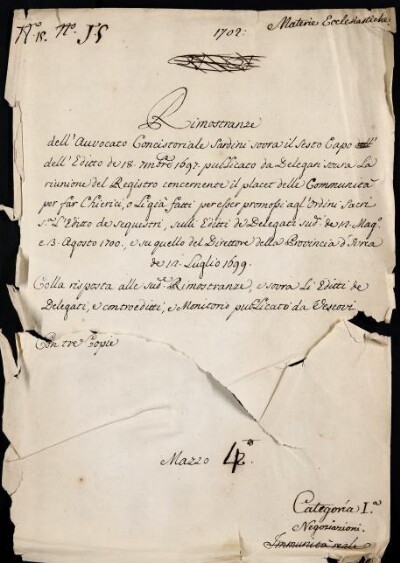 N.º 15. N.º J. S
1702.
Materie Ecclesiastiche.
Rimostranze
dell'Auvocato Concistoriale Sardini sovra il sesto Capo
dell'Editto de 18. 7mbre 1697. publicato da Delegati sovra la
riunione del Registro concernente il placet delle Communità
per far Chierici, o li già fatti per esser promossi agl'Ordini Sacri
s.ª l'Editto de sequestri, sulli Editti de Delegati sud.ti de 12 Mag.º
e 13. Agosto 1700., e su quello del Direttore della Provincia d'Ivrea
de 12. Luglio 1699.
Colla risposta alle sud.e Rimostranze, e sovra li Editti de
Delegati, e controeditti, e Monitorio publicato da Vescovi
Con tre Copie
Mazzo 4º.
Categoria I.ª
Negoziazioni.
Immunità reale